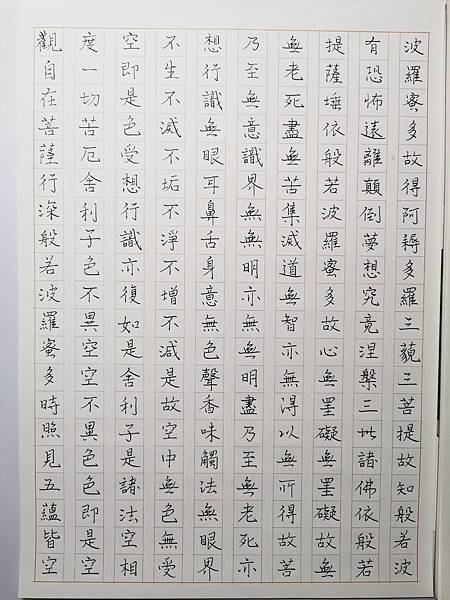 觀自在菩薩行深般若波羅蜜多時照見五蘊皆空
度一切苦厄舍利子色不異空空不異色色即是空
空即是色受想行識亦復如是舍利子是諸法空相
不生不滅不垢不淨不增不減是故空中無色無受
想行識無眼耳鼻舌身意無色聲香味觸法無眼界
乃至無意識界無無明亦無無明盡乃至無老死亦
無老死盡無苦集滅道無智亦無得以無所得故菩
提薩埵依般若波羅蜜多故心無罣礙無罣礙故無
有恐怖遠離顛倒夢想究竟涅槃三世諸佛依般若
波羅蜜多故得阿耨多羅三藐三菩提故知般若波